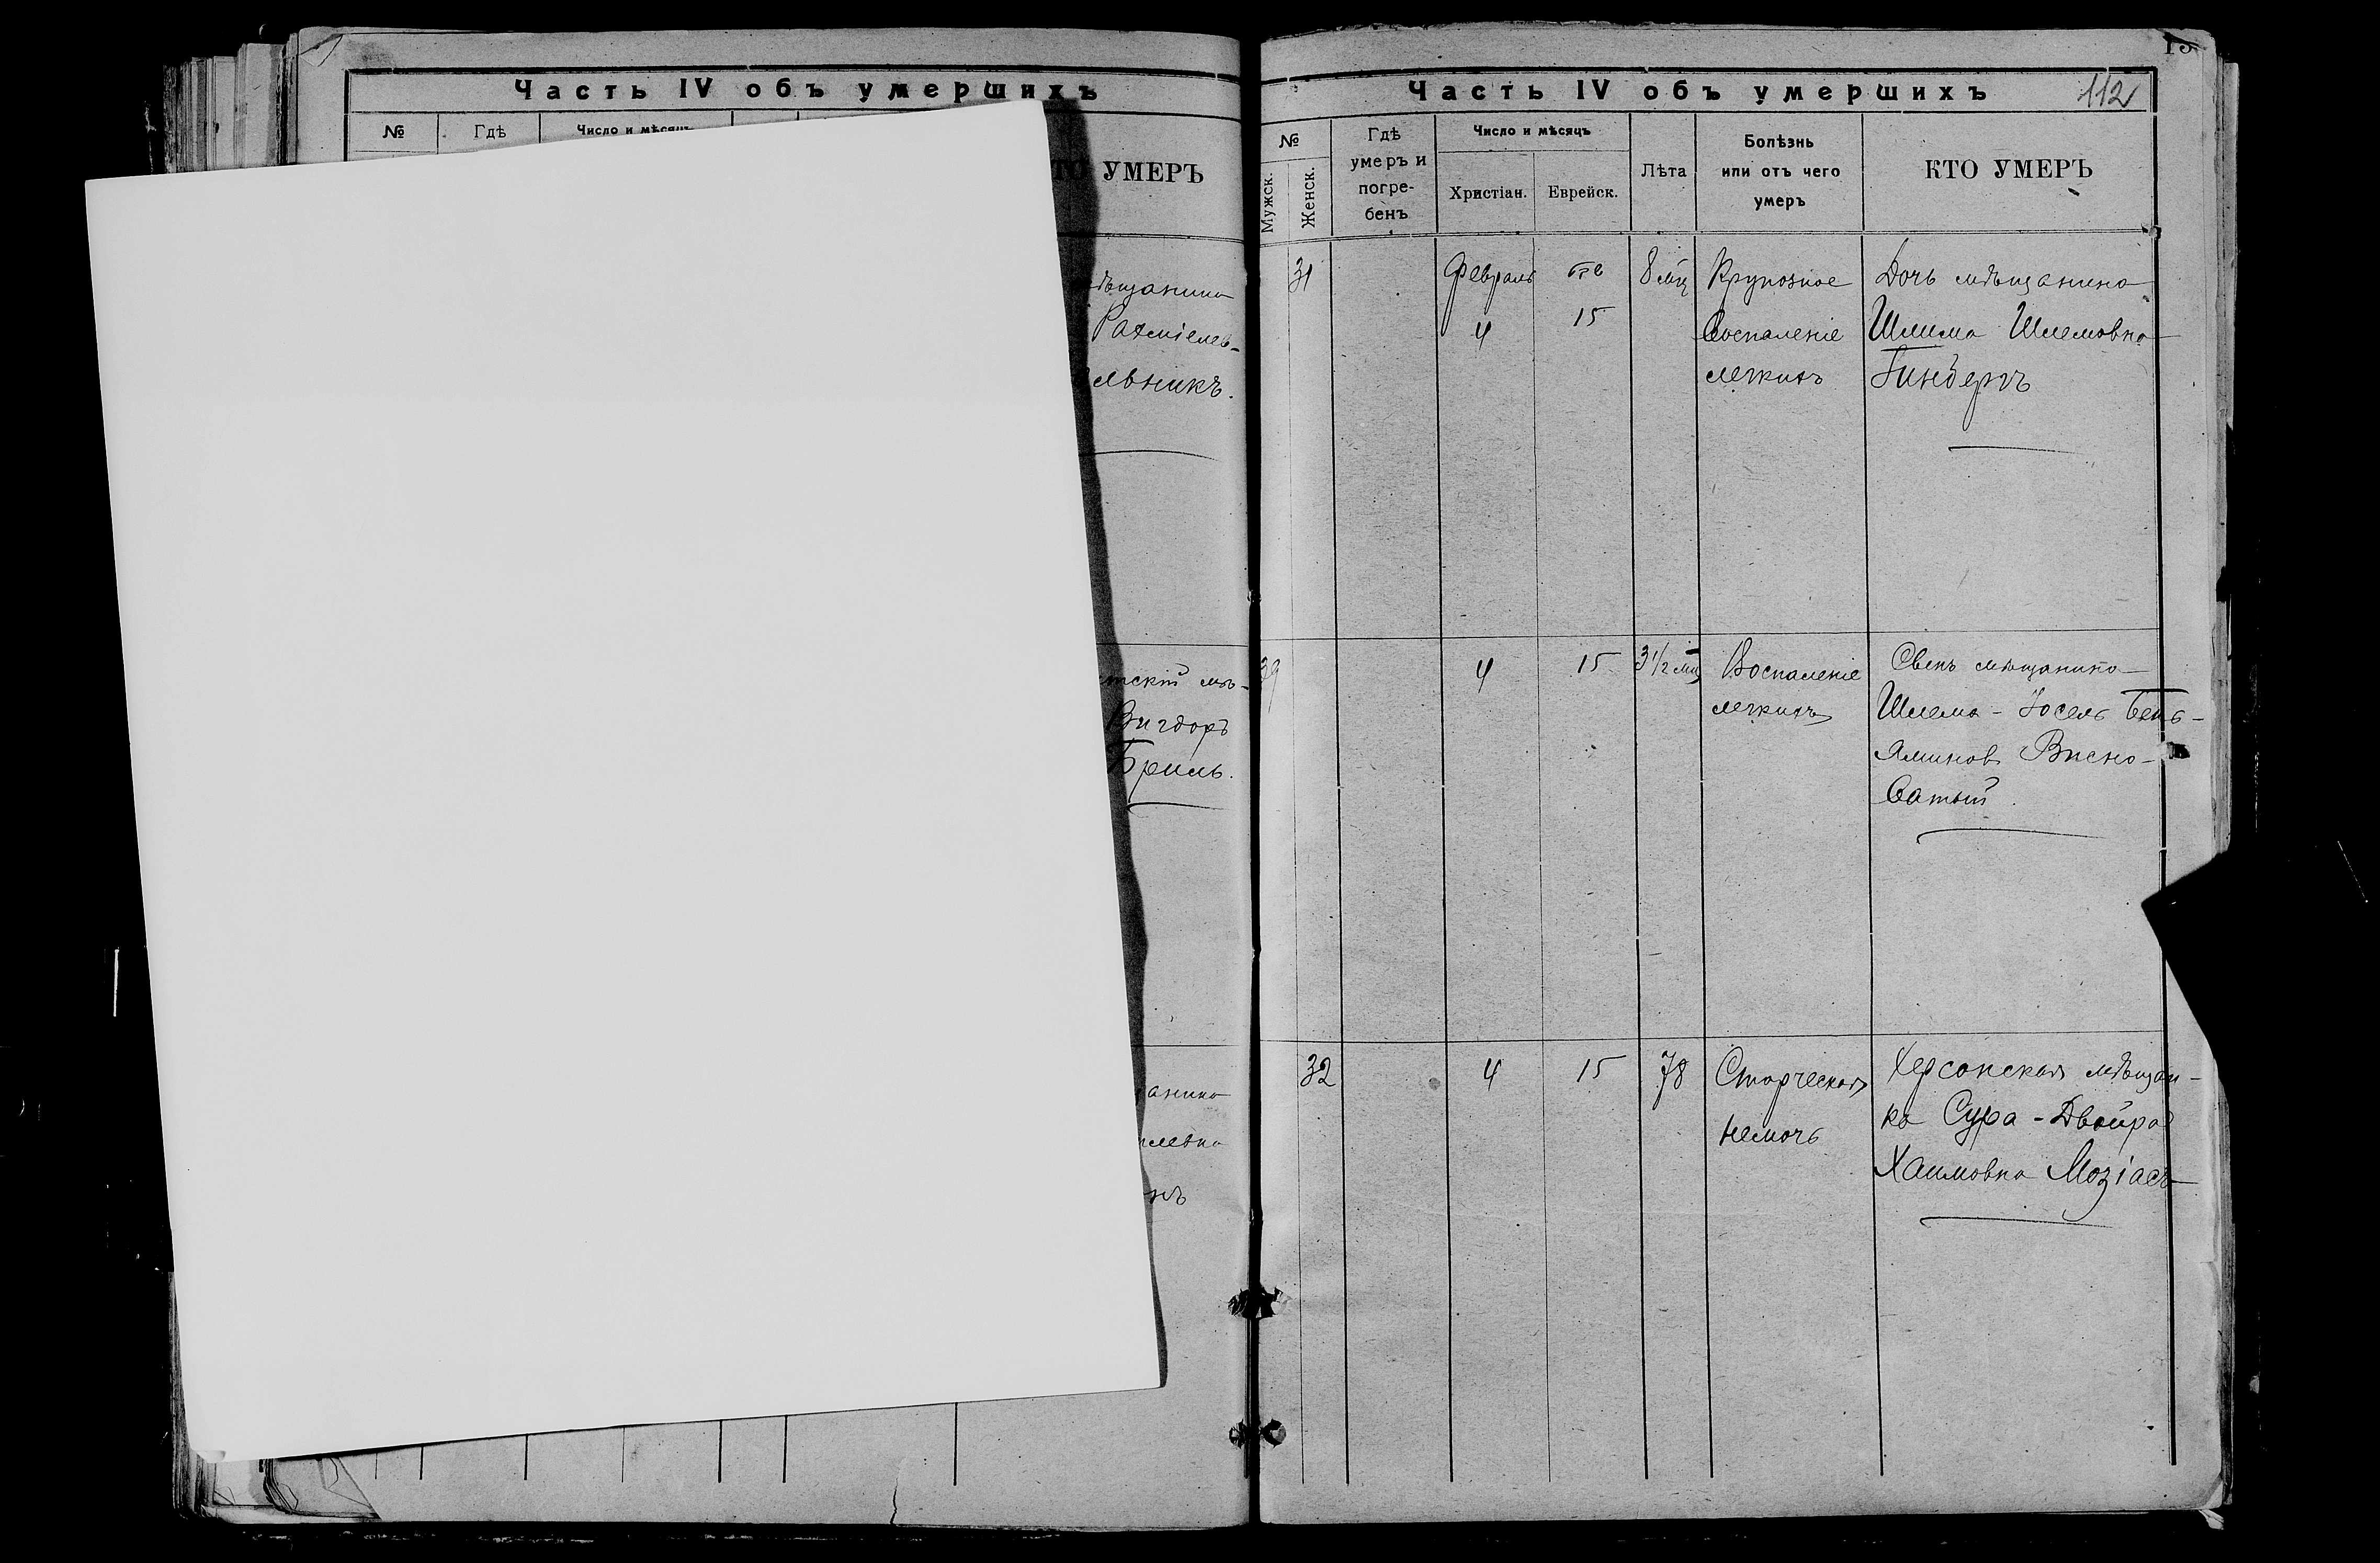 Часть IV объ умершихъ
№
Гдѣ
Число и мѣсяцъ
УМЕРЪ
ѣщанина
Рахміелев-
льникъ.
тскій мѣ-
Вигдоръ
Бриль.
анина
нъ
112
Часть IV объ умершихъ
№
Мужск.
Женск.
Гдѣ
умеръ и
погре-
бенъ
Число и мѣсяцъ
Христіан.
Еврейск.
Лѣта
Болѣзнь
или отъ чего
умеръ
КТО УМЕРЪ
31
Февраль
4
15
8 мц
Крупозное
Воспаленіе
легкихъ
Дочь мѣщанина
Шлима Шлемовна
Гинбергъ
39
4
15
3 1/2 мц
Воспаленіе
легкихъ
Сынъ мѣщанина
Шлема - Іосель Бень-
яминов Висно-
ватый.
32
4
15
78
Старческая
немочь
Херсонская мѣщан-
ка Сура - Двойра
Хаимовна Мозіасъ